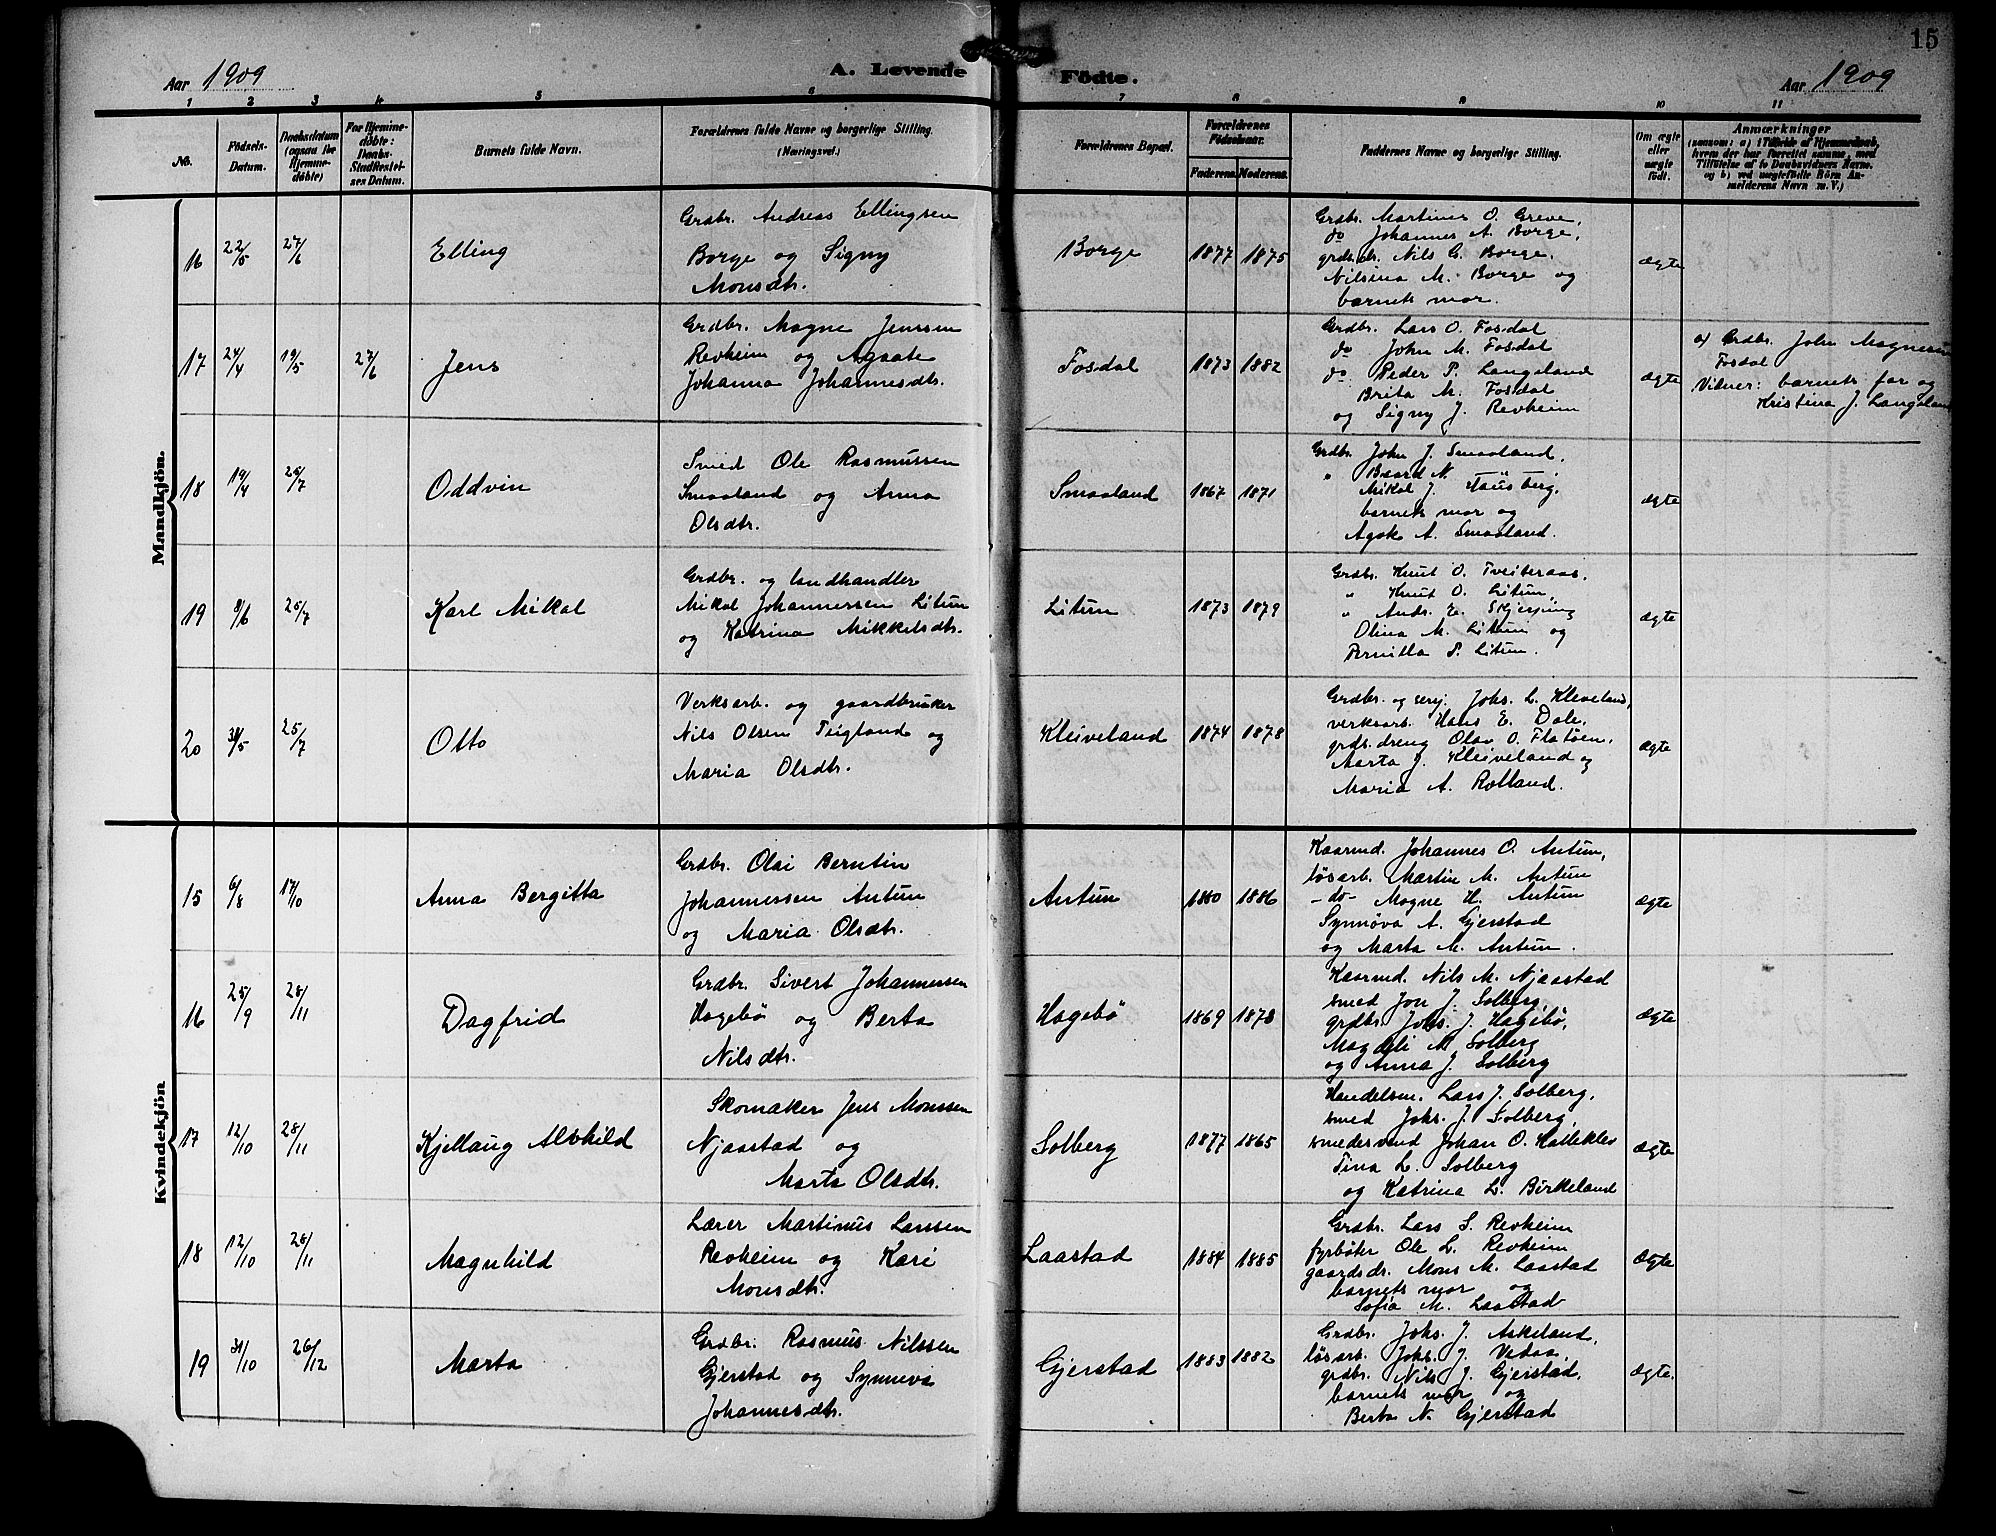 15
Aar 1909
A. Levende Födte.
Aar 1909
1 2 3 4 5 6 7 8 9 10 11
No.
Födsels-
Datum.
Daabsdatum
(ogsaa for
Hjemme-
döbte)
For Hjemme-
döbte:
Daabs-
Stadfæstel-
ses Datum.
Barnets fulde Navn.
Forældrenes fulde Navne og borgerlige Stilling.
(Næringsvei.)
Forældrenes Bopæl.
Forældrenes
Födselsaar.
Faderens. Moderens.
Faddernes Navne og borgerlige Stilling.
Om ægte
eller
uægte
født.
Anmærkninger
(saasom: a) i Tilfælde af Hjemmedaab,
hvem der har forrettet samme, med
Tilføielse af to Daabsvidners Navne.
og b) ved uægtefödte Börn An-
melderens Navn m. V.)
Mandkjön.
16 22/5 27/6
Elling
Grdbr. Andreas Ellingsen
Borge og Signy
Monsdtr.
Borge
1877 1875
Grdbr. Martines O. Greve,
do Johannes A. Borge,
grds.dr. Nils G. Borge,
Nilsina M. Borge og
barnets mor.
ægte
17 24/4 19/5 27/6
Jens
Grdbr. Mogne Jenssen
Revheim og Agaate
Johanna Johannesdtr.
Fosdal
1873 1882
Grdbr. Lars O. Fosdal
do John M. Fosdal
do Peder P. Langeland
Brita M. Fosdal
og Signy J. Revheim
ægte
a) Grdbr. John Magnesen
Fosdal
Vidner: barnets far og
Kristina J. Langeland
18 19/4 25/7
Oddvin
Smed Ole Rasmussen
Smaaland og Anna
Olsdtr.
Smaaland
1867 1871
Grdbr. John J. Smaaland,
" Baard N.
Mikal J. Tausberg,
barnets mor og
Agate A. Smaaland.
ægte
19 8/6 25/7
Karl Mikal
Grdbr. og landhandler
Mikal Johannessen Litun
og Katrina Mikkelsdtr.
Litun
1873 1879
Grdbr. Knut O. Tveiteraas,
" Knut O. Litun,
" Andr. E. Skjerping
Olina M. Litun og
Pernilla P. Litun.
ægte
20 31/5 25/7
Otto
Verksarb. og gaardbruker
Nils Olsen Teigland og
Maria Olsdtr.
Kleiveland
1874 1878
Grdbr. og serj. Johs. L. Kleveland,
verksarb. Hans E. Dale,
grds.dreng Olav O. Flatöen,
Marta J. Kleiveland og
Maria A. Rolland.
ægte
Kvindekjön
15 6/8 17/10
Anna Bergitta
Grdbr. Olai Berntin
Johannessen Antun
og Maria Olsdtr.
Antun
1880 1886
Kaarmd. Johannes O. Antun,
løsarb. Martin M. Antun
-do- Mogne H. Antun
Synnøva A. Gjerstad
og Marta M. Antun.
ægte
16 25/9 28/11
Dagfrid
Grdbr. Sivert Johannessen
Hagebö og Berta
Nilsdtr.
Hagebö
1869 1878
Kaarmd. Nils M. Njaastad
smed Jon J. Solberg,
grdbr. Johs. J. Hagebö,
Magdeli M. Solberg
og Anna J. Solberg
ægte
17 12/10 28/11
Kjellaug Alvhild
Skomaker Jens Monssen
Njaastad og
Marta Olsdtr.
Solberg
1877 1865
Handelsm. Lars J. Solberg,
smed Johs. J. Solberg,
smedesvend Johan O. Hallekleiv
Tina L. Solberg
og Katrina L. Birkeland
ægte
18 12/10 28/11
Magnhild
Lærer Martinus Larssen
Revheim og Kari
Monsdtr.
Laastad
1884 1885
Grdbr. Lars S. Revheim
fyrbøter Ole L. Revheim
gaardsdr. Mons M. Laastad
barnets mor og
Sofia M. Laastad
Ægte
19 31/10 26/12
Marta
Grdbr. Rasmus Nilssen
Gjerstad og Synneva
Johannesdtr.
Gjerstad
1883 1882
Grdbr. Johs. J. Askeland,
løsarb. Johs. J. Vedaa,
grdbr. Nils J. Gjerstad,
barnets mor og
Berta N. Gjerstad
ægte.